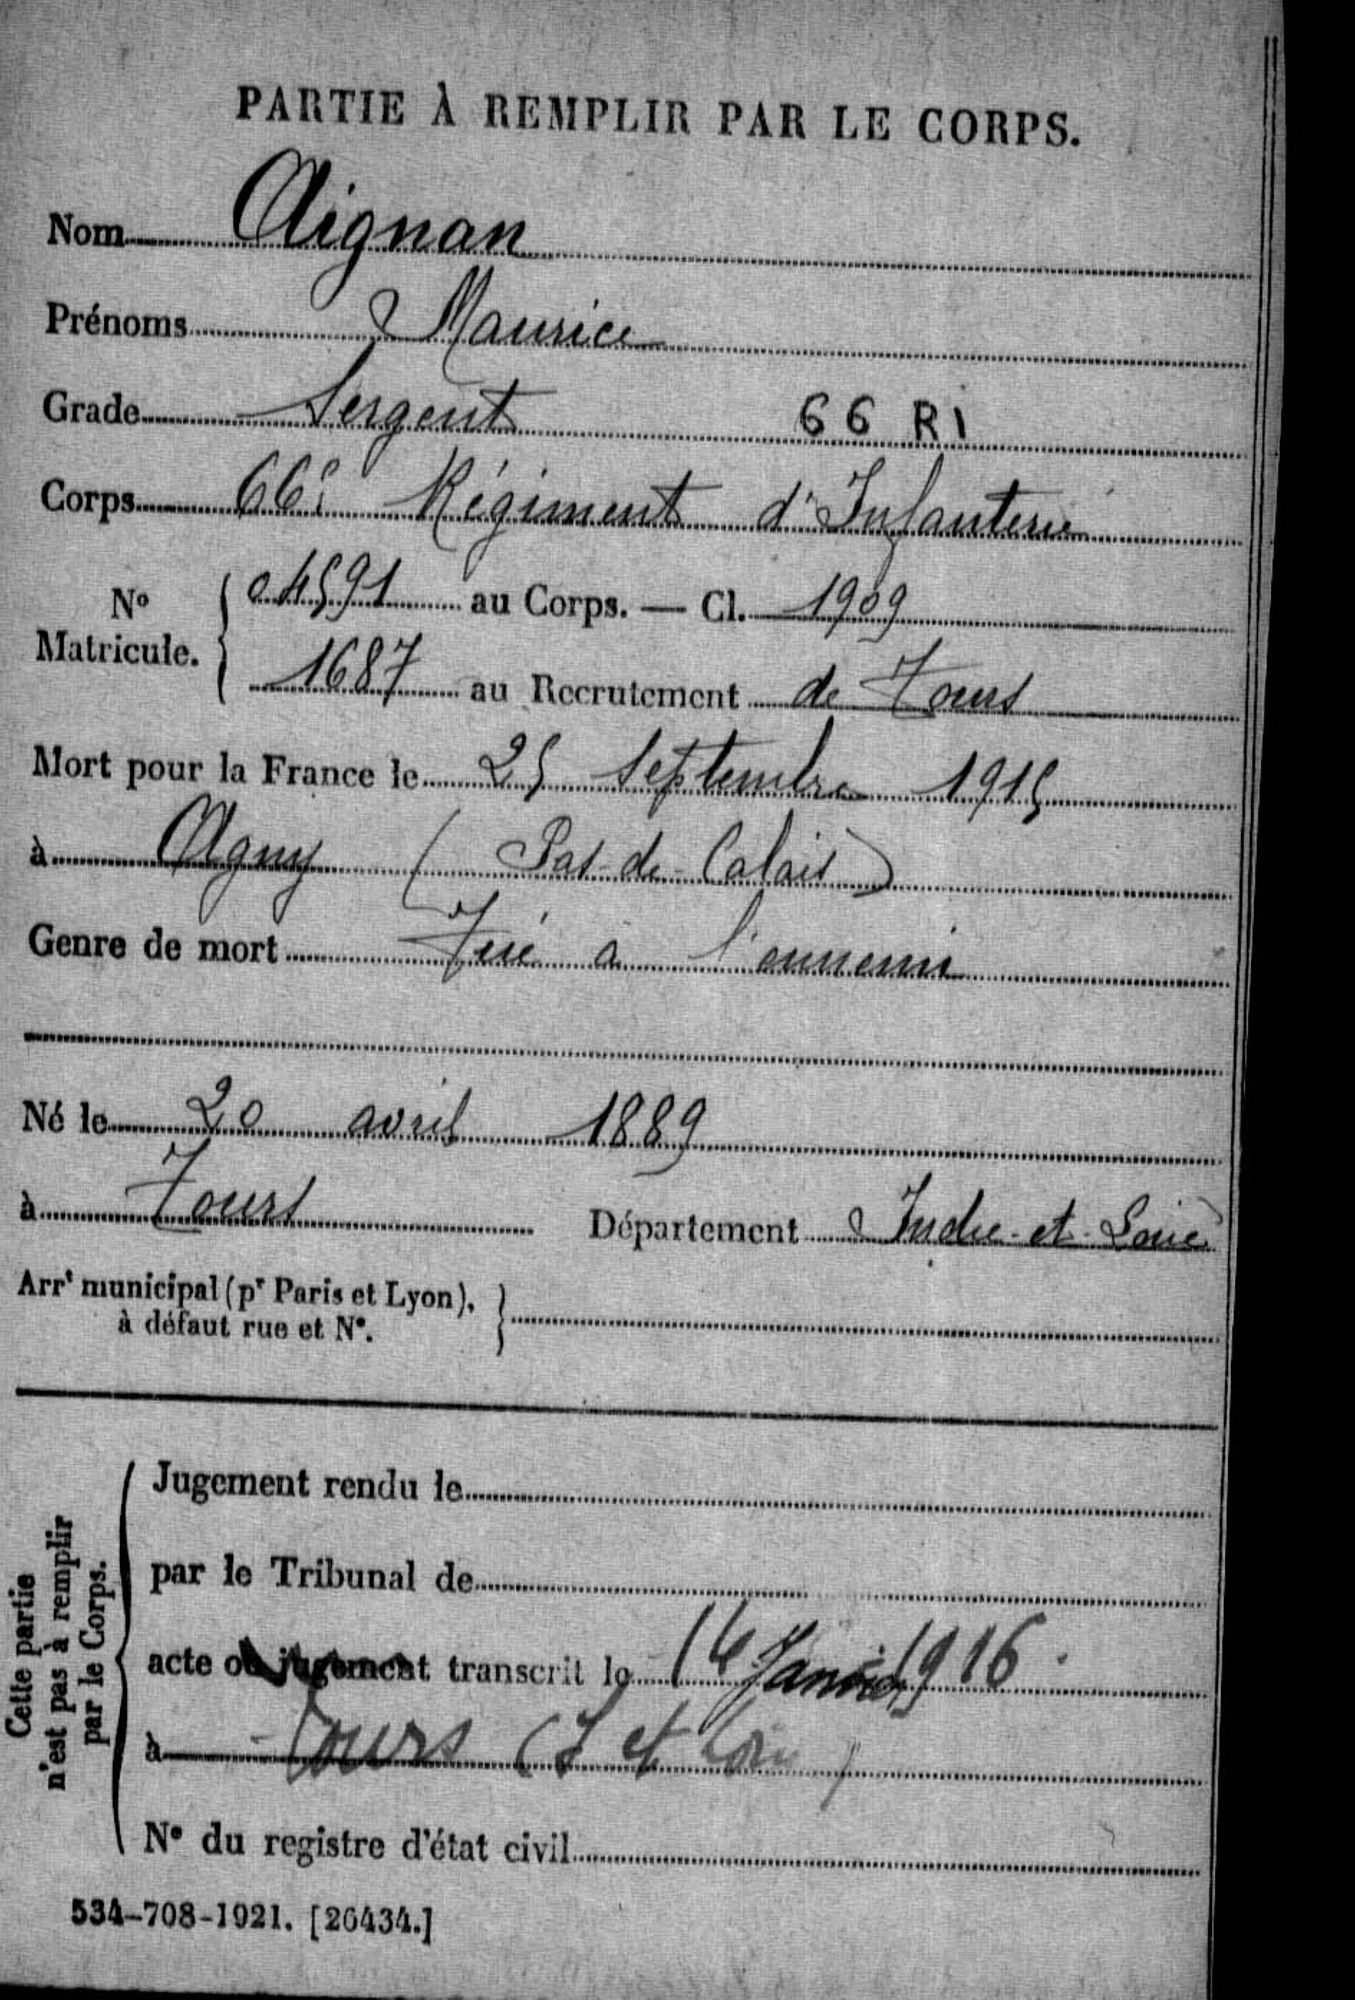 PARTIE À REMPLIR PAR LE CORPS.
Nom Aignan
Prénoms Maurice
Grade Sergent 66 RI
Corps 66e Régiment d'Infanterie
No Matricule. { 04591 au Corps. — Cl. 1909
1687 au Recrutement de Tours
Mort pour la France le 25 Septembre 1915
à Agny (Pas-de-Calais)
Genre de mort Tué à l'ennemi
Né le 20 avril 1889
à Tours Département Indre-et-Loire
Arrt municipal (pr Paris et Lyon), }
à défaut rue et No.
Cette partie
n'est pas à remplir
par le Corps.
Jugement rendu le
par le Tribunal de
acte ou jugement transcrit le Janvier 1916.
à Tours (I et Loire)
No du registre d'état civil
534-708-1921. [26434.]